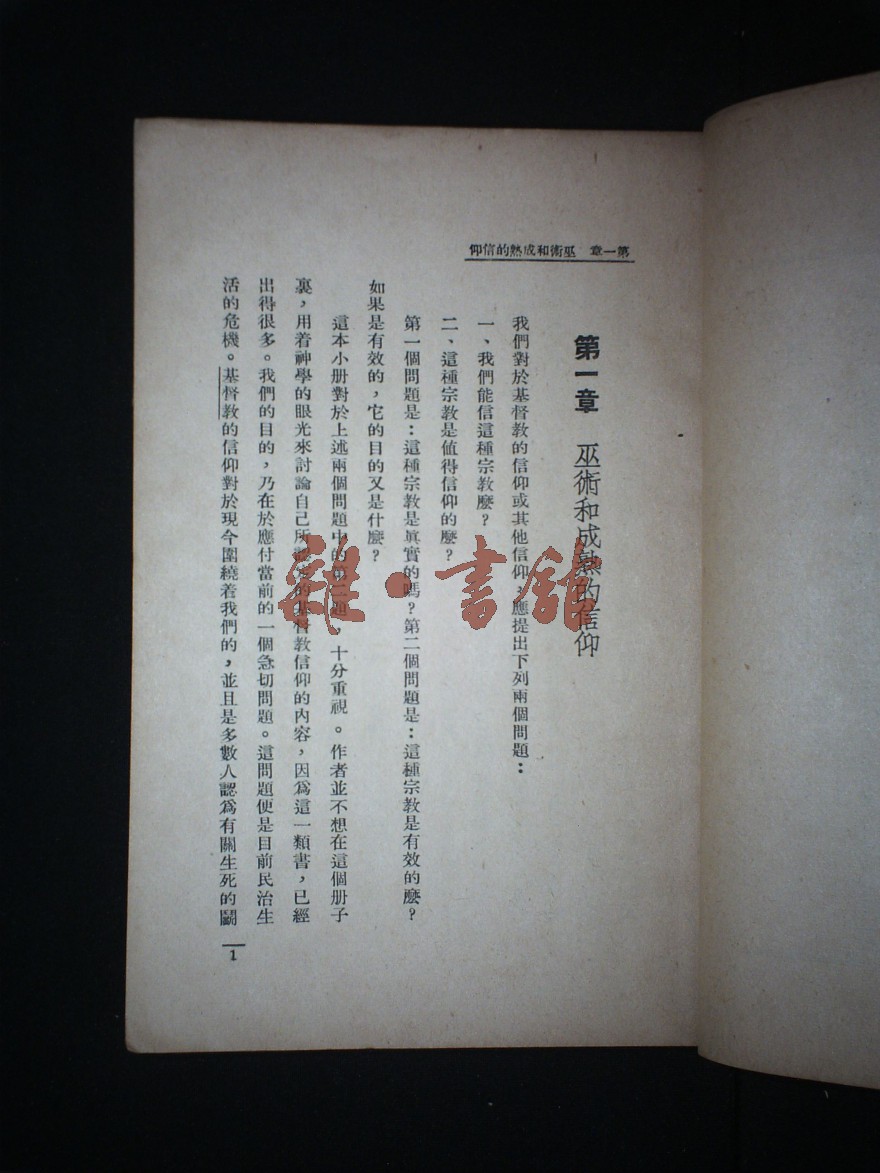 第一章 巫術和成熟的信仰
第一章 巫術和成熟的信仰
我們對於基督教的信仰或其他信仰，應提出下列兩個問題：
一、我們能信這種宗教麼？
二、這種宗教是值得信仰的麼？
第一個問題是：這種宗教是眞實的嗎？第二個問題是：這種宗教是有效的麼？
如果是有效的，它的目的又是什麼？
這本小册對於上述兩個問題中的第二題，十分重視。作者並不想在這個册子
裏，用着神學的眼光來討論自己所的基督教信仰的內容，因爲這一類書，已經
出得很多。我們的目的，乃在於應付當前的一個急切問題。這問題便是目前民治生
活的危機。基督教的信仰對於現今圍繞着我們的，並且是多數人認爲有關生死的鬭
1
雜·書館